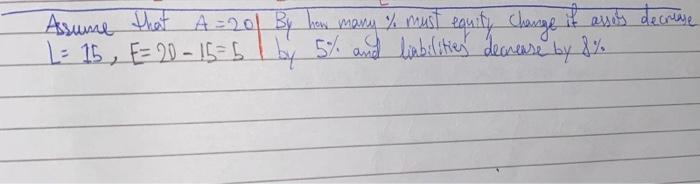 Assume that A = 20 | By how many % must equity change if assets decrease
L = 15, E = 20 - 15 = 5 | by 5% and liabilities decrease by 8%